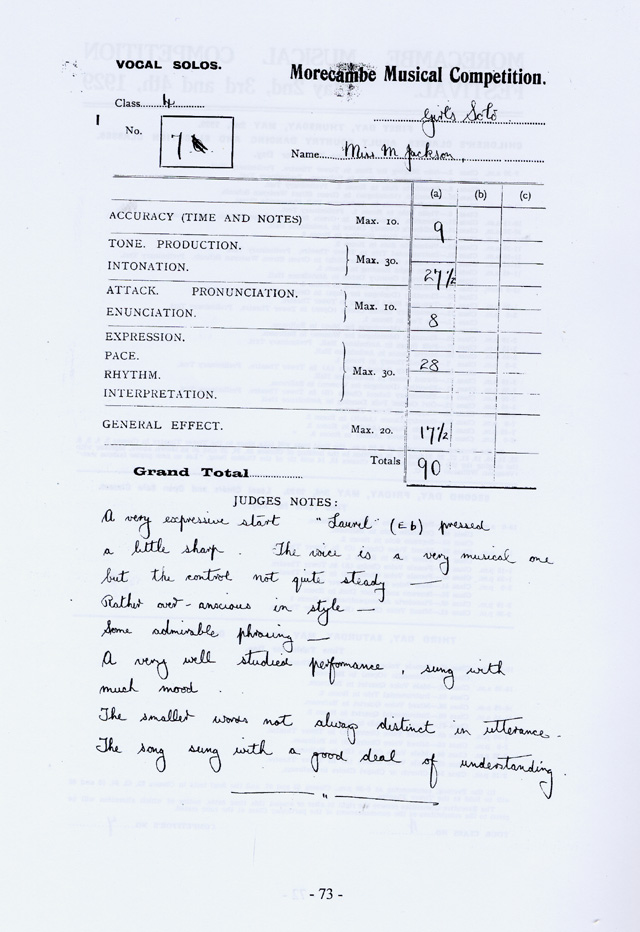 VOCAL SOLOS.
Morecambe Musical Competition.
Class 4
Girls Solo
No. 7
Name Miss M Jackson,
(a) (b) (c)
ACCURACY (TIME AND NOTES) Max. 10. 9
TONE. PRODUCTION.
INTONATION. Max. 30. 27½
ATTACK. PRONUNCIATION.
ENUNCIATION. Max. 10. 8
EXPRESSION.
PACE.
RHYTHM.
INTERPRETATION. Max. 30. 28
GENERAL EFFECT. Max. 20. 17½
Grand Total Totals 90
JUDGES NOTES:
A very expressive start "Laurel" (Eb) pressed
a little sharp. The voice is a very musical one
but the control not quite steady —
Rather over-anxious in style —
Some admirable phrasing —
A very well studied performance, sung with
much mood.
The smaller words not always distinct in utterance.
The song sung with a good deal of understanding.
- 73 -